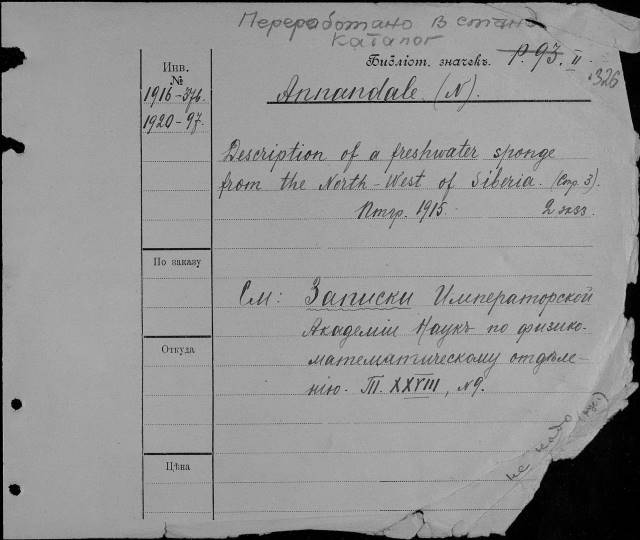 Переработано в
каталог
Инв.
№
1916-376.
1920-97.
Библіот. значекъ. P. 93. II
326
Annandale. (N).
Description of a freshwater sponge
from the North-West of Siberia. (Стр. 3).
Птгр. 1915. 2 экз.
По заказу
См: Записки Императорской
Академіи Наукъ по физико-
математическому отдѣле-
нію. Т. XXVIII, №9.
Откуда
Цѣна
не надо